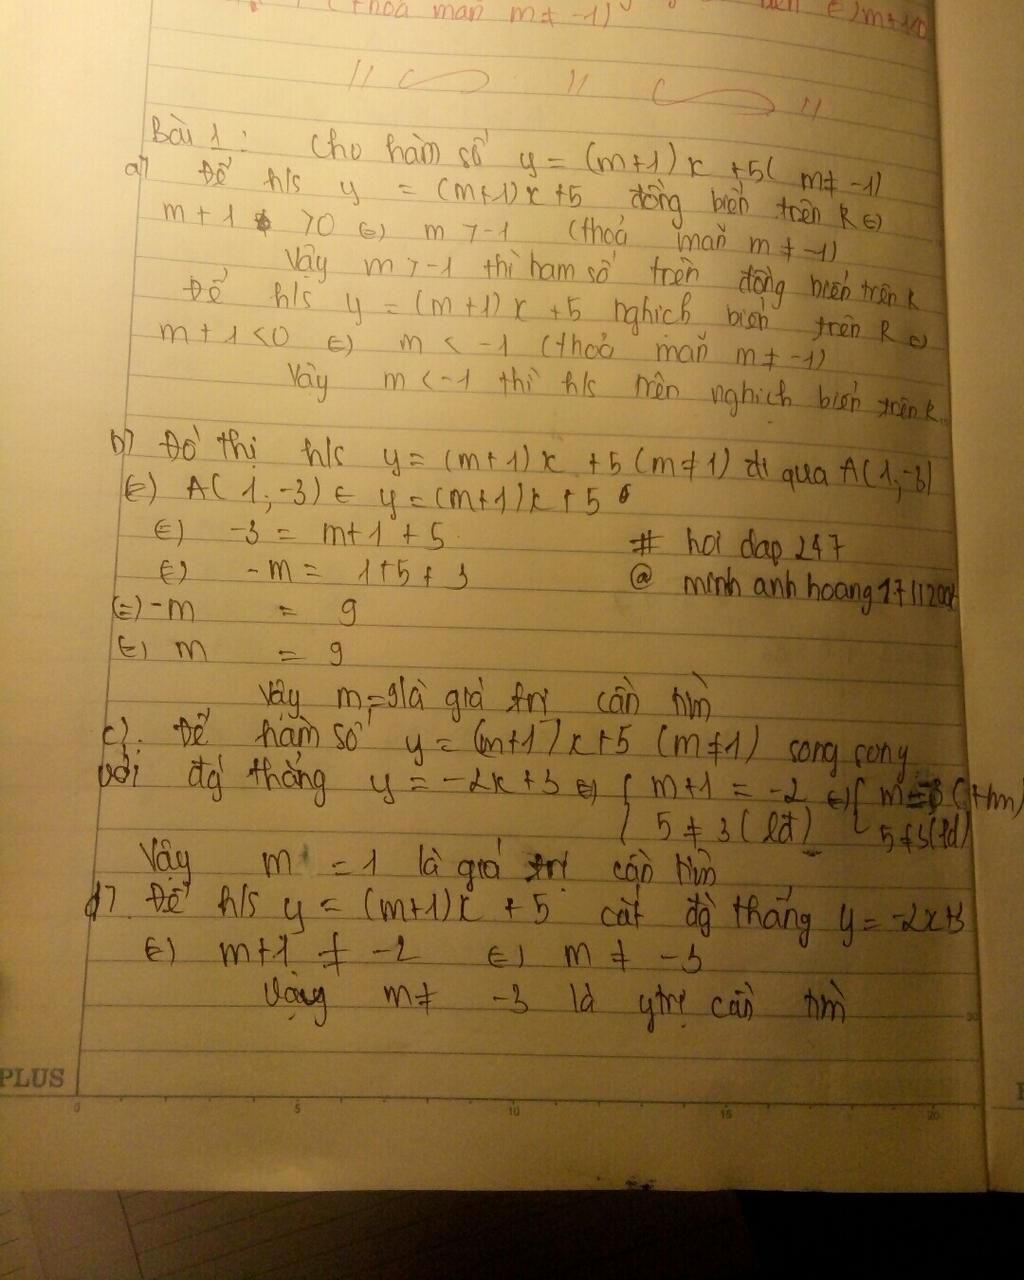 (thoả mãn m ≠ -1)
Bài 1: Cho hàm số y = (m+1)x +5( m≠ -1)
a) Để h/s y = (m+1)x+5 đồng biến trên R (=)
m+1 >0 (=) m >-1 (thoả mãn m ≠ -1)
Vậy m >-1 thì ham số trên đồng biến trên R
Để h/s y = (m+1)x +5 nghịch biến trên R (=)
m+1<0 (=) m < -1 (thoả mãn m ≠ -1)
Vậy m <-1 thì h/s trên nghịch biến trên R.
b) Đồ thị h/s y= (m+1)x +5 (m≠1) đi qua A(1,-3)
(=) A(1;-3) ∈ y=(m+1)x+5
(=) -3 = m+1+5
# hoi dap 247
(=) -m = 1+5+3
@ minh anh hoang
(=) -m = 9
(=) m = 9
Vậy m=9là giá trị cần tìm
c). Để hàm số y = (m+1)x+5 (m≠1) song song
với đg thẳng y = -2x+3 (=) { m+1 = -2 (=) { (thm)
5 ≠ 3 (lđ) 5≠3(lđ)
Vậy m =1 là giá trị cần tìm
d). Để h/s y = (m+1)x +5 cắt đg thẳng y= -2x+3
(=) m+1 ≠ -2 (=) m ≠ -3
Vậy m≠ -3 là gtrị cần tìm
PLUS
0 5 10 15 20